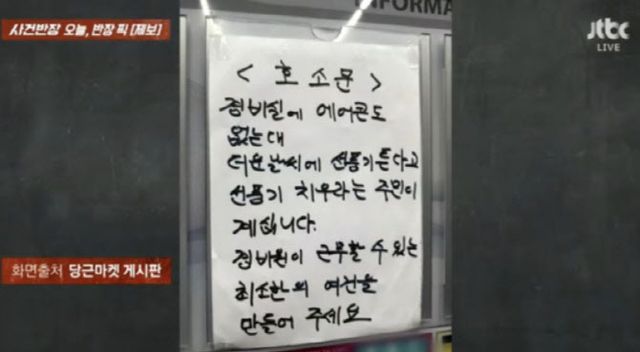 사건반장 오늘, 반장 픽 [제보]
jtbc
LIVE
INFORMA
< 호소문 >
경비실에 에어콘도
없는대
더운날씨에 선풍기튼다고
선풍기 치우라는 주민이
계십니다.
경비원이 근무할 수 있는
최소한의 여건을
만들어 주세요
화면출처 당근마켓 게시판